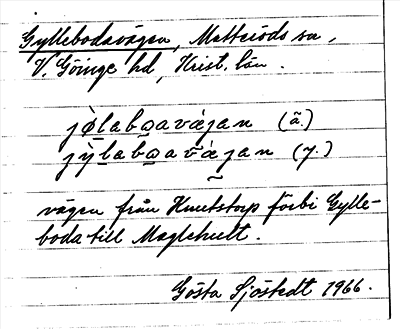 Gyllebodavägen, Matteröds sn,
V. Göinge hd, Krist. län.
jø̀labɷavàgan (ä.)
jỳlabɷavàgan (y.)
vägen från Knutstorp förbi Gylle-
boda till Maglehult.
Gösta Sjöstedt 1966.